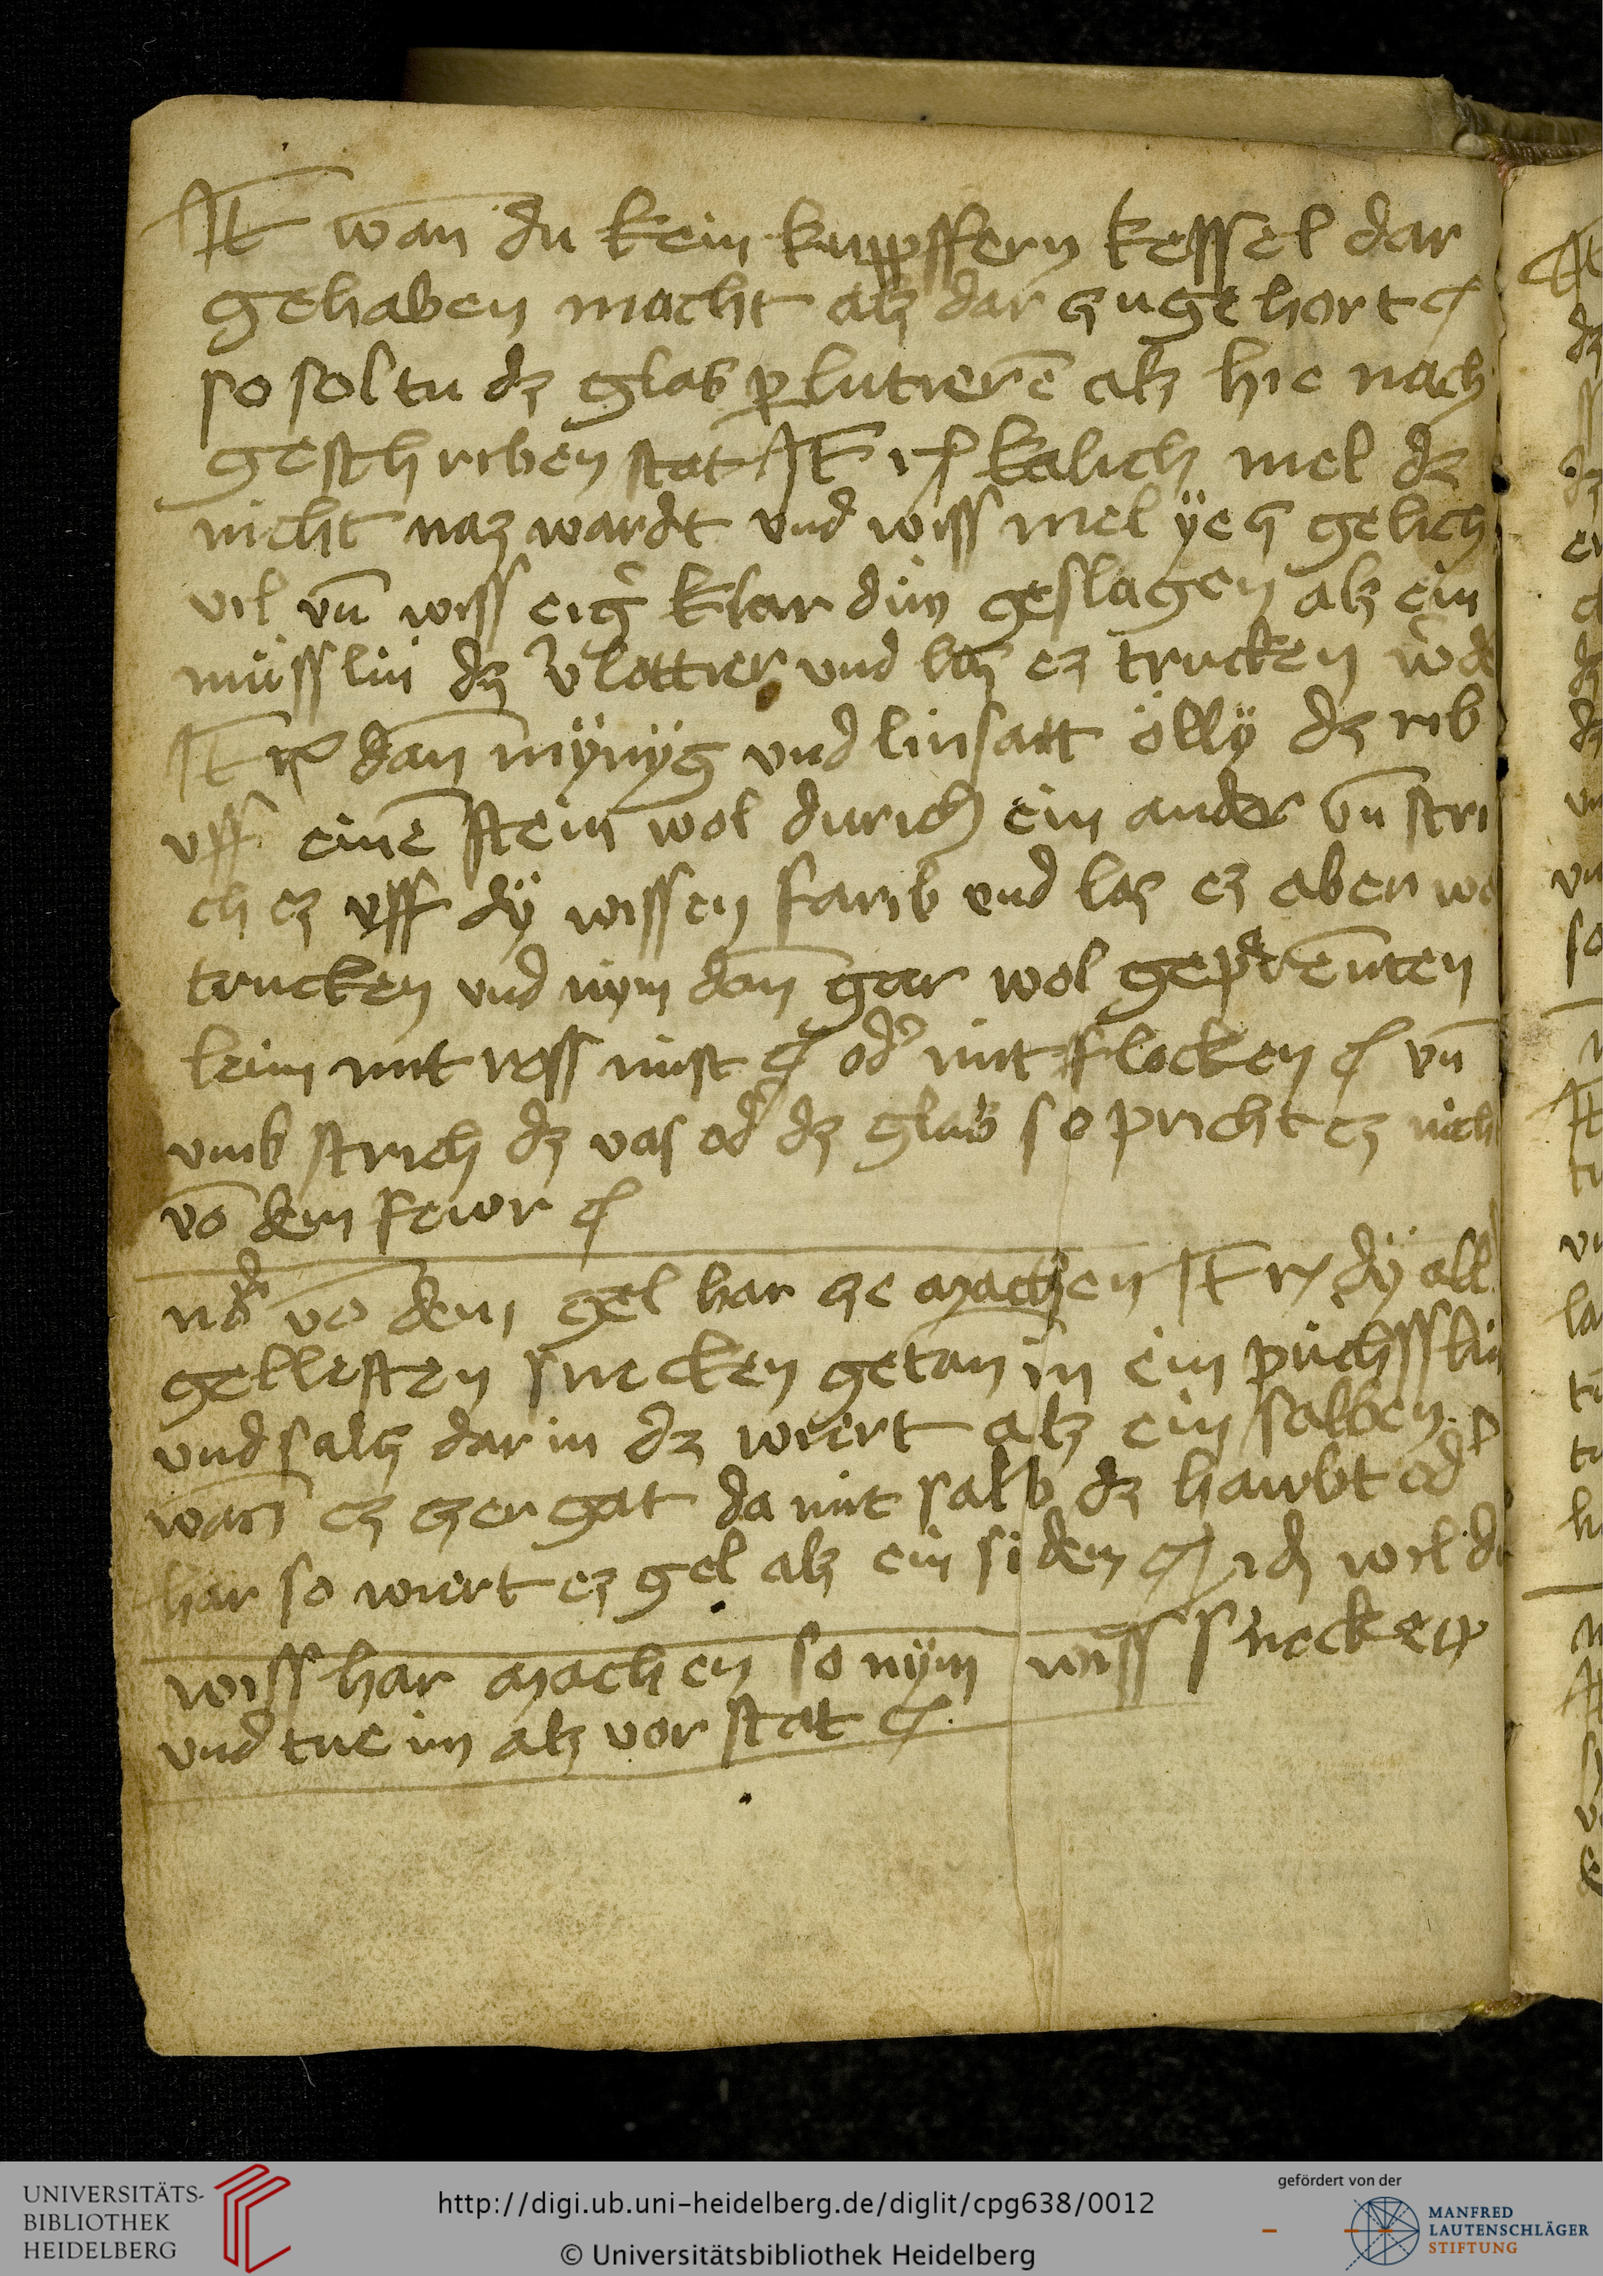 It wan̄ du kein kuppffern kessel dar
gehaben macht alz dar zugehort
so soltu dz glas plutierē alz hie nach
geschriben stat It rp kalich mel dz
nicht naz wardt und wiss mel ÿez gelich
vil vn̄ wiss eig̾ klar dün geslagen alz ein
müsslin dz v̾lottier und laz ez trucken w̾de
It rp dan̄ mÿnÿg und linsatt öllÿ dz rib
uff einē stein wol durich ein ander vn̄ stri
ch ez uff dÿ wissen farib und laz ez aber we
trucken und nym dan̄ gar wol geprenten
leim mit ross mist od̾ mit flocken vn̄
umb strich dz vas od̾ dz glas so pricht ez nich
vō dem fewr
vō dem gel har ze machen It rp dÿ all
gellesten snecken getan in ein püchsslin
und salz dar in dz wiert alz ein salben
wan̄ ez zer gat da mit salb dz hawbt od̾
har so wiert ez gel alz ein siden wil du
wiss har machen so nÿm wiss snecken
und tue im alz vor stat
UNIVERSITÄTS-
BIBLIOTHEK
HEIDELBERG
http://digi.ub.uni-heidelberg.de/diglit/cpg638/0012
© Universitätsbibliothek Heidelberg
gefördert von der
MANFRED
LAUTENSCHLÄGER
STIFTUNG